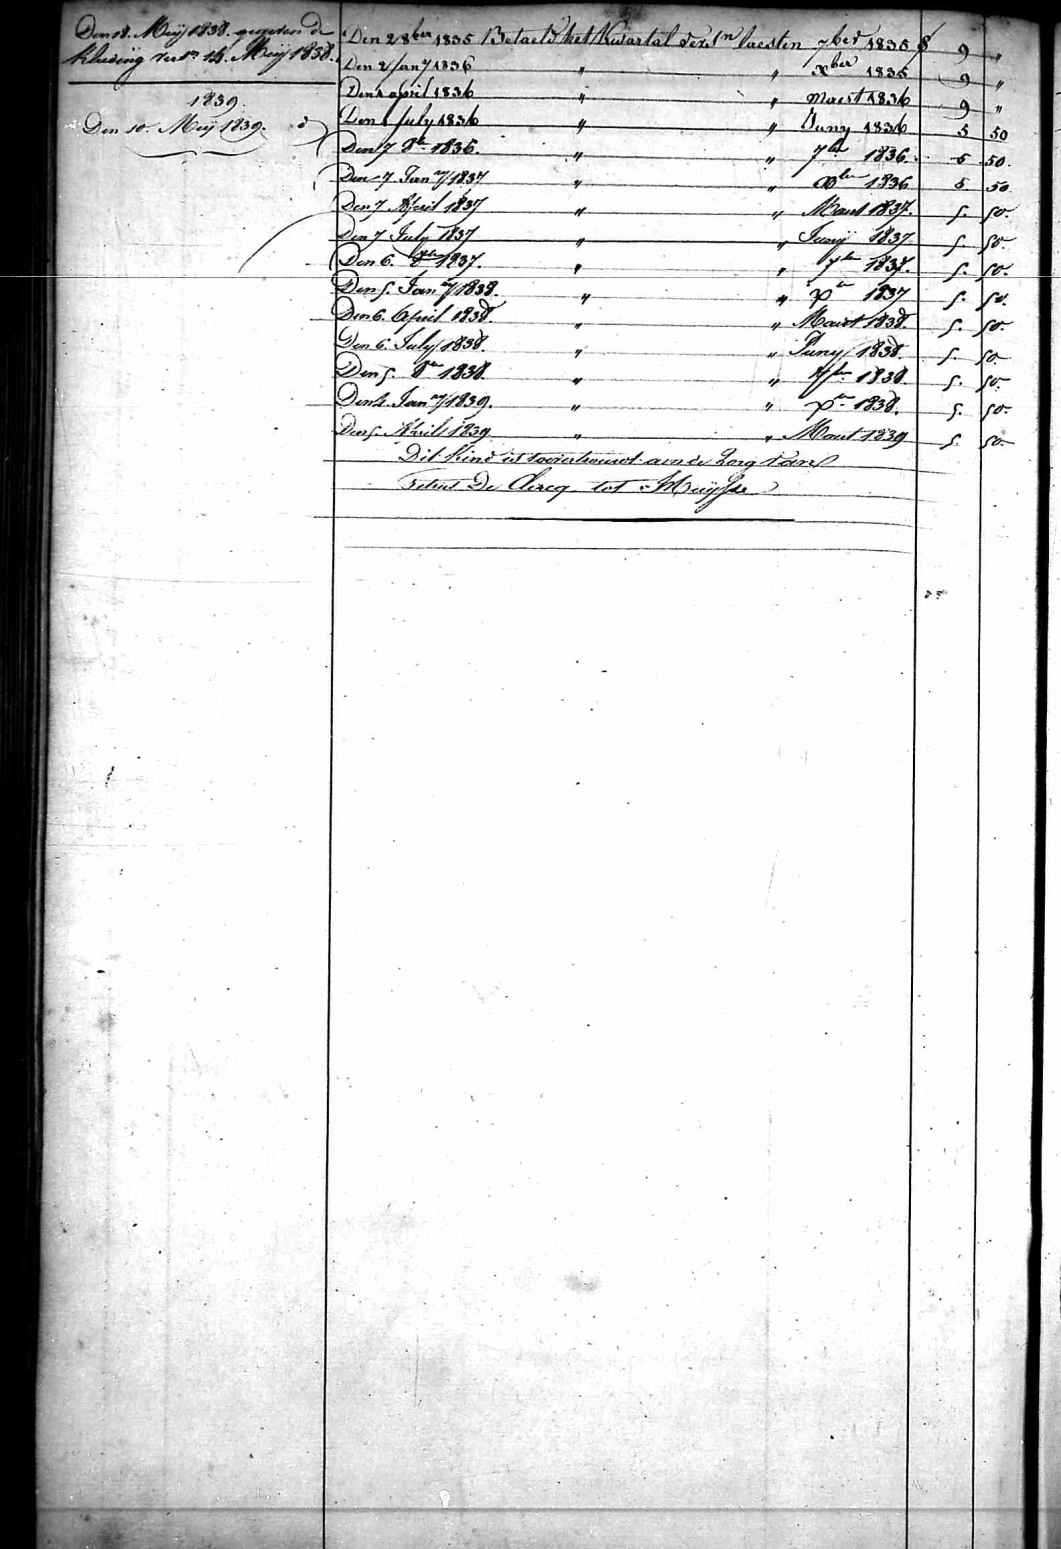 Den 18. Meij 1838. gegeven de
kleeding
1839.
Den 10. Meij 1839. d°
Den 2 8ber 1835 Betaeld het Kwartal der 1n laesten 7ber 1835 f 9 "
Den 2 Jany 1836 " " Xber 1835 9 "
Den 1 april 1836 " " Maert 1836 9 "
Den 1 July 1836 " " Juny 1836 5 50
Den 7 8br 1836. " " 7ber 1836. 5 50.
Den 7 Jany 1837 " " Xber 1836 5 50
Den 7 April 1837 " " Maart 1837. 5. 50.
Den 7 July 1837 " " Junij 1837. 5. 50
Den 6. 8ber 1837. " " 7ber 1837. 5. 50.
Den 5. Jany 1838. " " Xer 1837 5. 50.
Den 6. April 1838. " " Maart 1838. 5. 50.
Den 6. July 1838. " " Juny 1838. 5. 50.
Den 5. 8er 1838. " " 7ber 1838. 5. 50.
Den 4. Jany 1839. " " Xer 1838. 5. 50.
Den 5 April 1839 " " Maart 1839 5. 50.
Dit Kind is toevertrouwt aen de zorg van
De Clercq tot